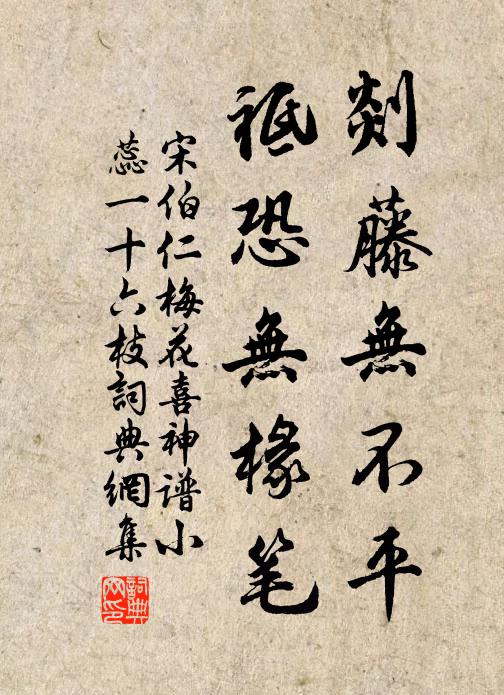 剡藤無不平
祗恐無椽笔
宋伯仁梅花喜神谱小
蕊一十六枝詞典網集
詞典網印